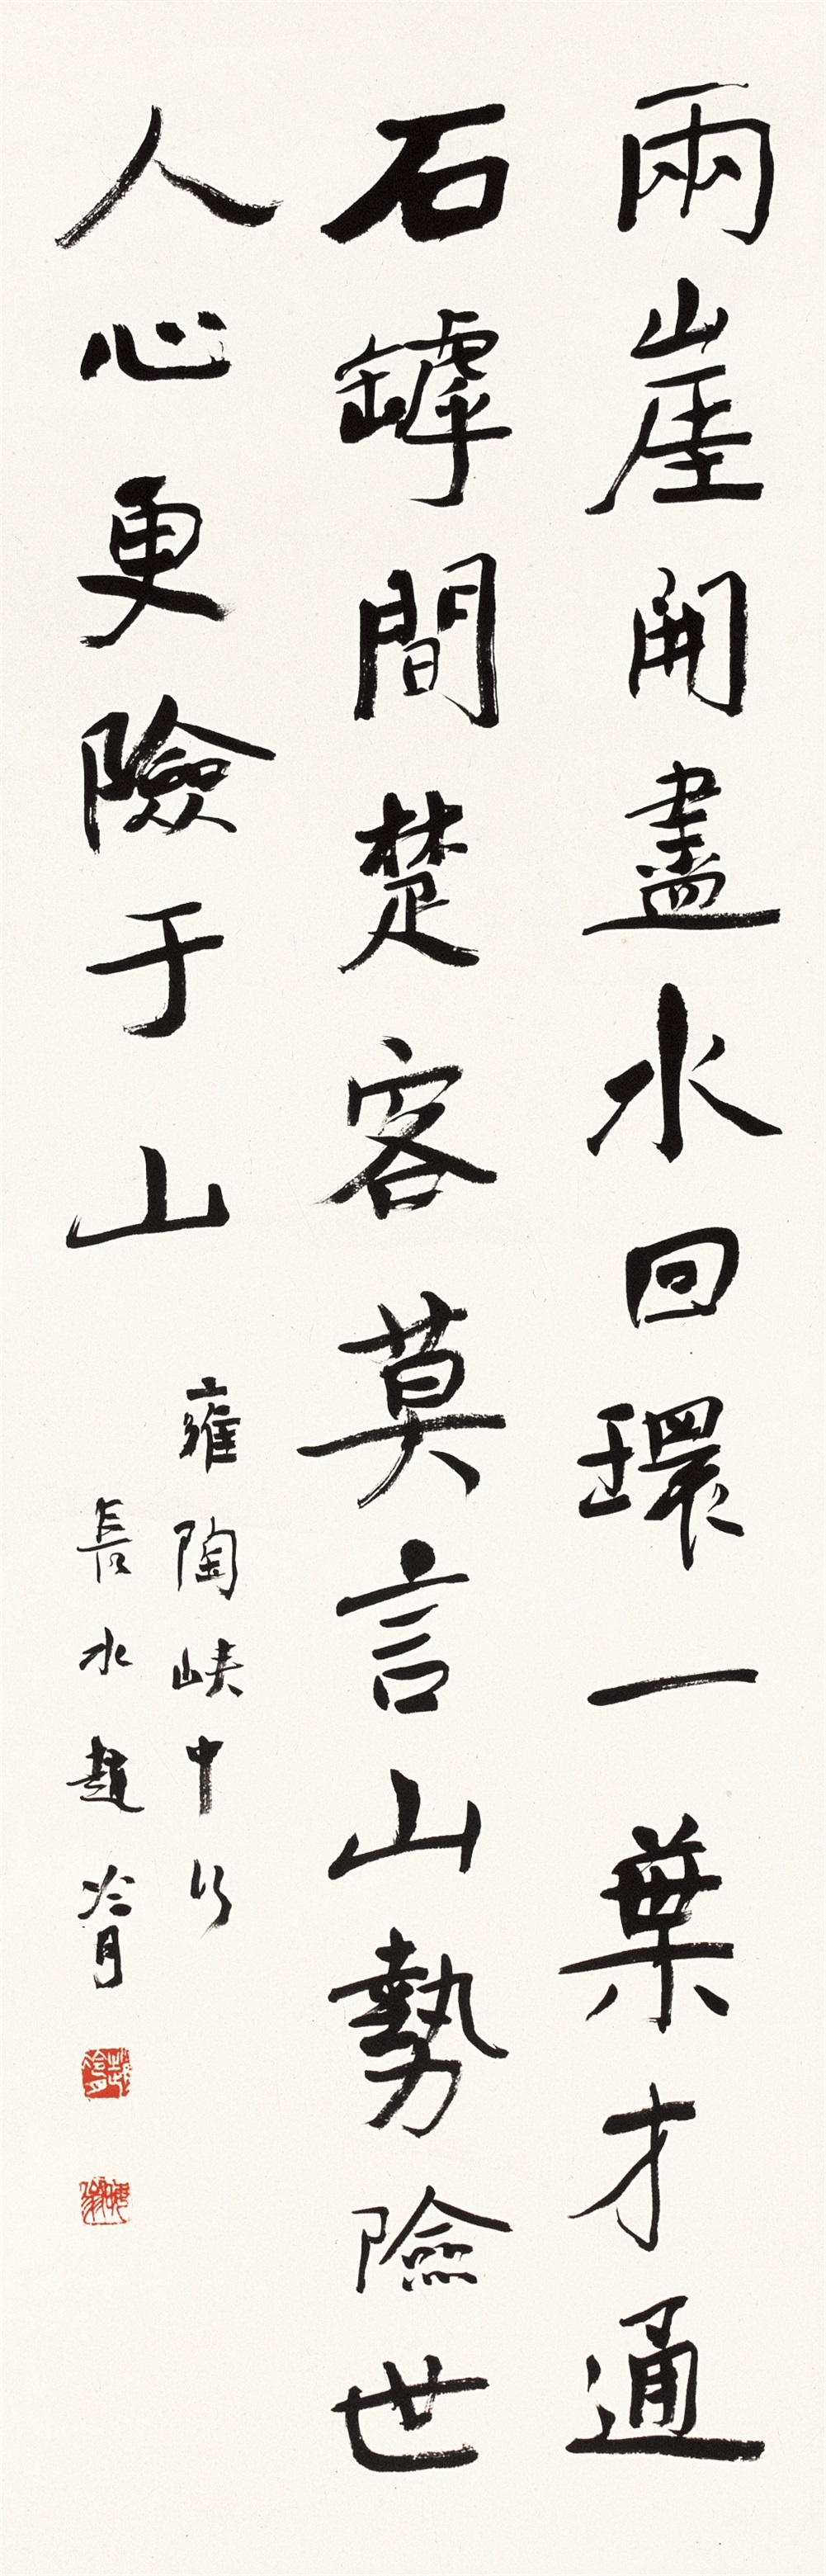 兩崖開盡水回環一葉才通
石罅間楚客莫言山勢險世
人心更險于山
雍陶峽中行
長水趙冷月